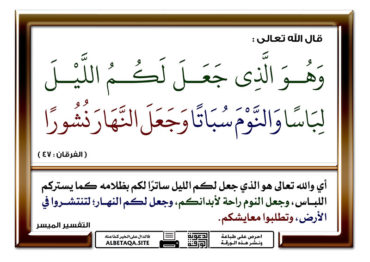 قال الله تعالى :
وَهُوَ الَّذِي جَعَلَ لَكُمُ اللَّيْلَ
لِبَاسًا وَالنَّوْمَ سُبَاتًا وَجَعَلَ النَّهَارَ نُشُورًا
( الفرقان : ٤٧ )
أي والله تعالى هو الذي جعل لكم الليل ساترًا لكم بظلامه كما يستركم
اللباس، وجعل النوم راحة لأبدانكم، وجعل لكم النهار؛ لتنتشروا في
الأرض، وتطلبوا معايشكم.
التفسير الميسر
احرص على طباعة
ونشر هذه الورقة
فالدال على الخير كفاعله
ALBETAQA.SITE